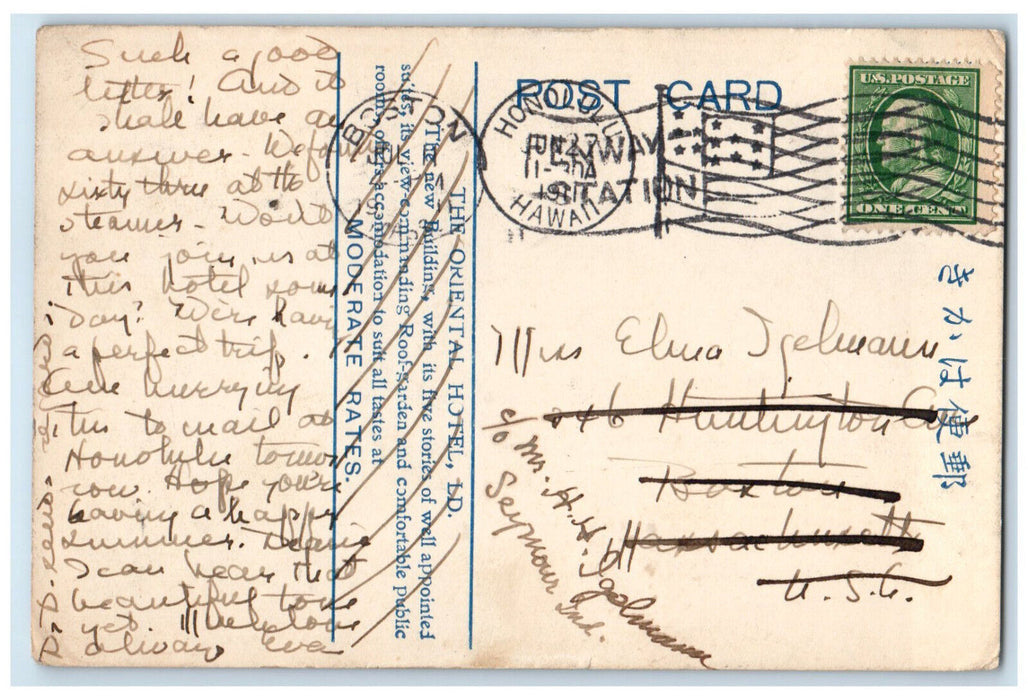 Such a good
letter! And it
shall have an
answer. We found
sixty three at the
steamer. Won't
you join us at
this hotel some
day? We're having
a perfect trip.
Am hurrying
this to mail at
Honolulu tomor
row. Hope you're
having a happy
summer. Dearie
I can hear that
beautiful tone
yet.
always
THE ORIENTAL HOTEL, LD.
"The new Building, with its five stories of well appointed
suites, its view-commanding Roof-Garden and comfortable public
rooms, offers accommodation to suit all tastes at
MODERATE RATES.
POST CARD
BOSTON
HONOLULU
JUN 27
11-30A
HAWAII
STATION
U.S. POSTAGE
ONE CENT
きかは便郵
Miss Elma Igelmann
246 Huntington Ave
Boston
Massachusetts
U.S.A.
c/o Mr. H. H. Igelmann
Seymour Ind.